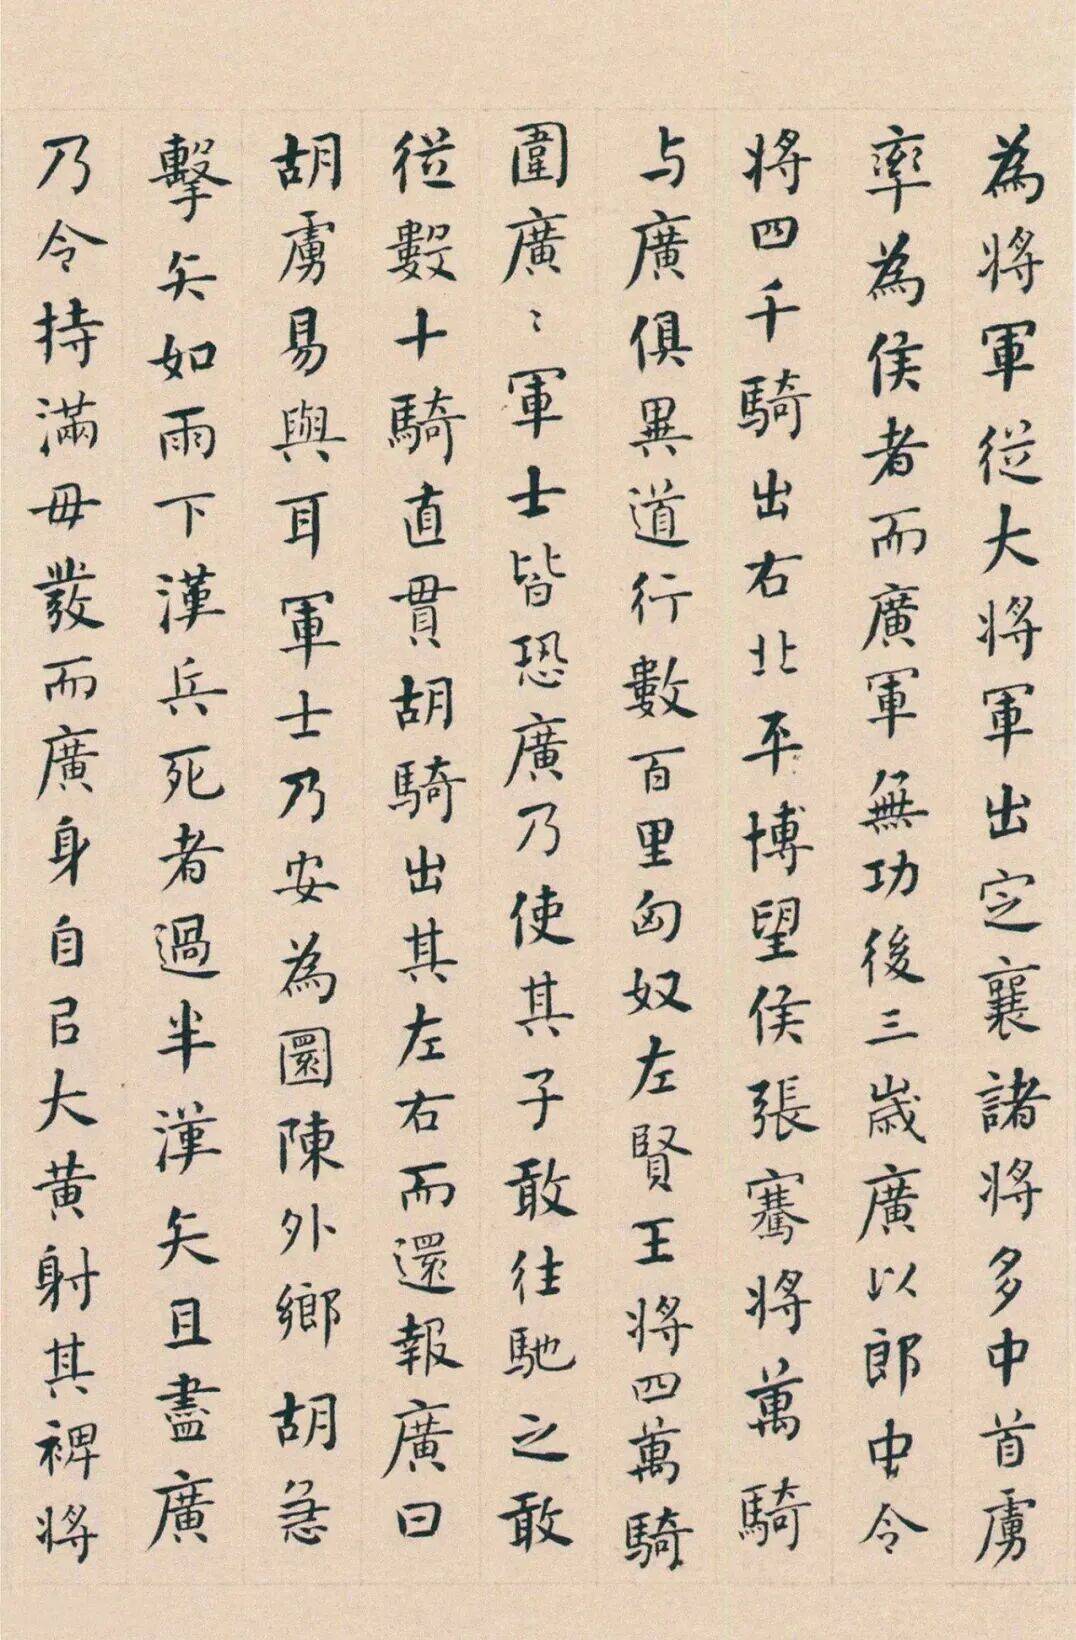 為將軍從大將軍出定襄諸將多中首虜
率為侯者而廣軍無功後三歲廣以郎中令
將四千騎出右北平博望侯張騫將萬騎
与廣俱異道行數百里匈奴左賢王將四萬騎
圍廣〻軍士皆恐廣乃使其子敢往馳之敢
從數十騎直貫胡騎出其左右而還報廣曰
胡虜易與耳軍士乃安為圜陳外鄉胡急
擊矢如雨下漢兵死者過半漢矢且盡廣
乃令持滿毋發而廣身自㠯大黃射其裨將